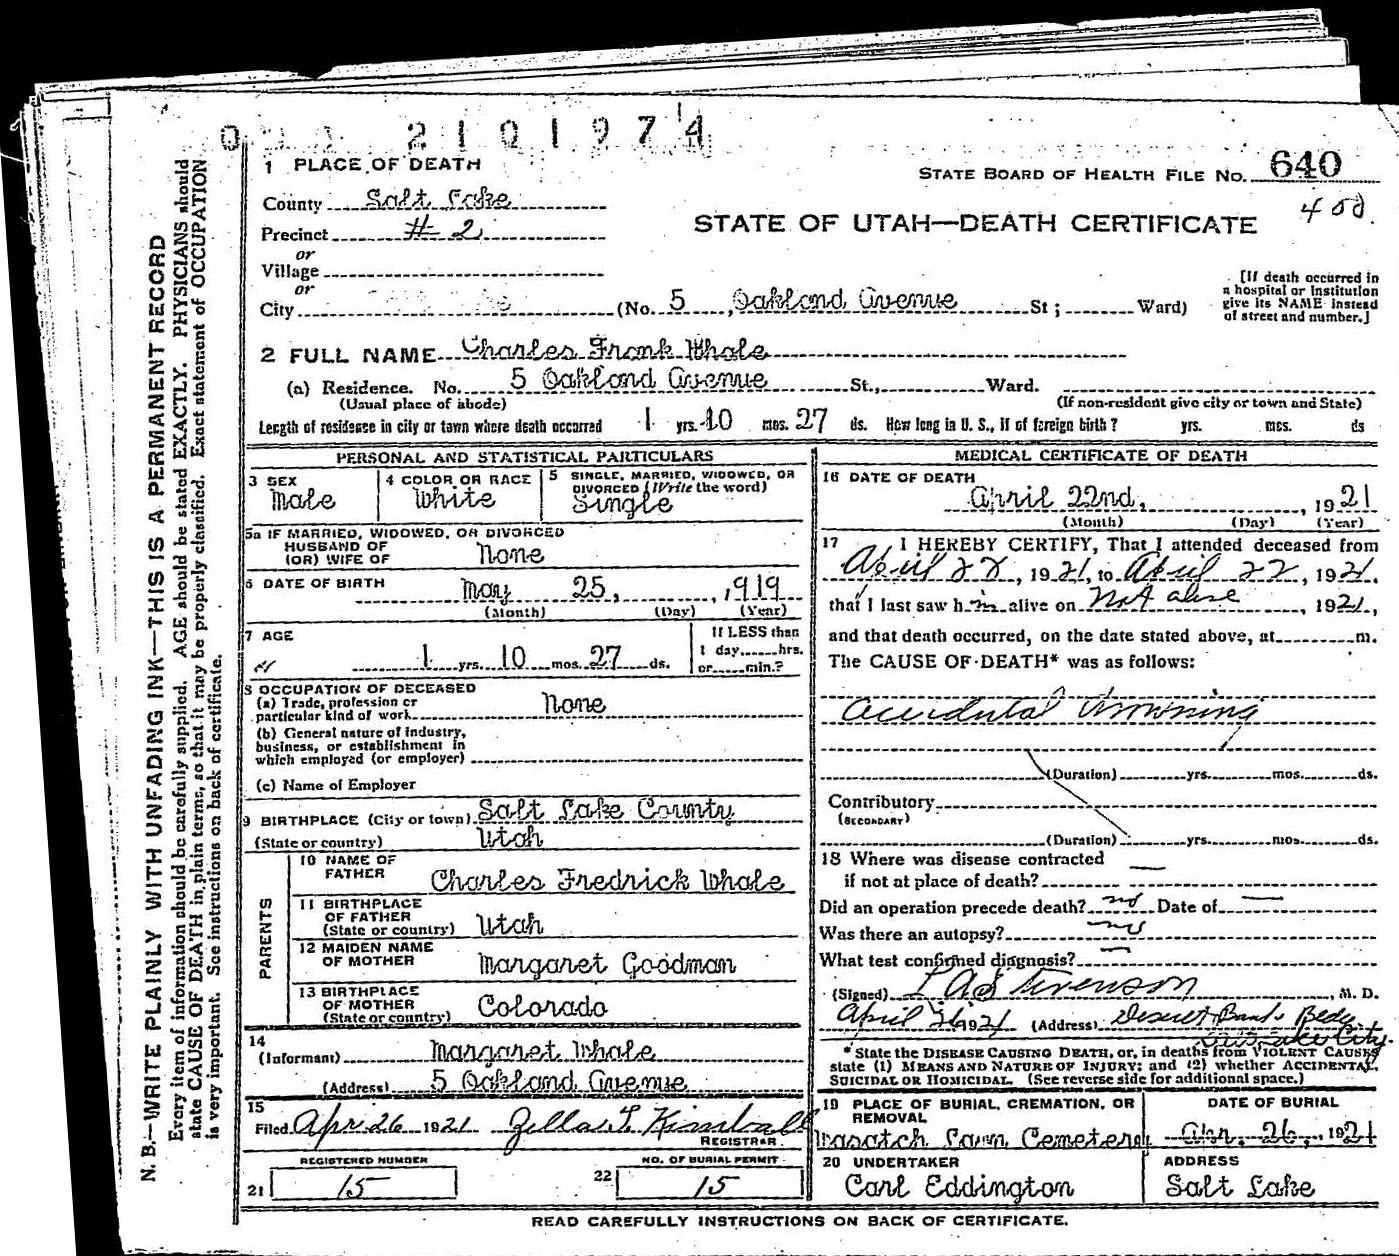 2101974
1 PLACE OF DEATH
STATE BOARD OF HEALTH FILE NO. 640
County Salt Lake
400.
Precinct # 2
STATE OF UTAH—DEATH CERTIFICATE
or
Village
or
City (No. 5, Oakland Avenue St; Ward)
[If death occurred in
a hospital or institution
give its NAME instead
of street and number.]
2 FULL NAME Charles Frank Whale
(a) Residence. No. 5 Oakland Avenue St., Ward.
(Usual place of abode) (If non-resident give city or town and State)
Length of residence in city or town where death occurred 1 yrs. 10 mos. 27 ds. How long in U. S., if of foreign birth? yrs. mos. ds
PERSONAL AND STATISTICAL PARTICULARS
3 SEX
Male
4 COLOR OR RACE
White
5 SINGLE, MARRIED, WIDOWED, OR
DIVORCED (Write the word)
Single
5a IF MARRIED, WIDOWED, OR DIVORCED
HUSBAND OF
(OR) WIFE OF None
6 DATE OF BIRTH May 25, , 919
(Month) (Day) (Year)
7 AGE
1 yrs. 10 mos. 27 ds.
If LESS than
1 day hrs.
or min.?
8 OCCUPATION OF DECEASED
(a) Trade, profession or
particular kind of work None
(b) General nature of industry,
business, or establishment in
which employed (or employer)
(c) Name of Employer
9 BIRTHPLACE (City or town) Salt Lake County
(State or country) Utah
PARENTS
10 NAME OF
FATHER Charles Fredrick Whale
11 BIRTHPLACE
OF FATHER
(State or country) Utah
12 MAIDEN NAME
OF MOTHER Margaret Goodman
13 BIRTHPLACE
OF MOTHER
(State or country) Colorado
14
(Informant) Margaret Whale
(Address) 5 Oakland Avenue
15
Filed Apr 26 1921 Zella F. Kimball
REGISTRAR
REGISTERED NUMBER
21 15
NO. OF BURIAL PERMIT
22 15
MEDICAL CERTIFICATE OF DEATH
16 DATE OF DEATH
April 22nd, , 1921
(Month) (Day) (Year)
17 I HEREBY CERTIFY, That I attended deceased from
April 22, 1921, to April 22, 1921,
that I last saw him alive on Not alive, 1921,
and that death occurred, on the date stated above, at m.
The CAUSE OF DEATH* was as follows:
Accidental Drowning
(Duration) yrs. mos. ds.
Contributory
(SECONDARY)
(Duration) yrs. mos. ds.
18 Where was disease contracted
if not at place of death? —
Did an operation precede death? no Date of —
Was there an autopsy? no
What test confirmed diagnosis? —
(Signed) L A Stevenson, M. D.
April 1921 (Address) Deseret Bank Bldg
Salt Lake City.
* State the DISEASE CAUSING DEATH, or, in deaths from VIOLENT CAUSES
state (1) MEANS AND NATURE OF INJURY; and (2) whether ACCIDENTAL,
SUICIDAL OR HOMICIDAL. (See reverse side for additional space.)
19 PLACE OF BURIAL, CREMATION, OR
REMOVAL
Wasatch Lawn Cemetery
DATE OF BURIAL
Apr. 26, 1921
20 UNDERTAKER
Carl Eddington
ADDRESS
Salt Lake
READ CAREFULLY INSTRUCTIONS ON BACK OF CERTIFICATE.
N. B.—WRITE PLAINLY WITH UNFADING INK—THIS IS A PERMANENT RECORD
Every item of information should be carefully supplied. AGE should be stated EXACTLY. PHYSICIANS should
state CAUSE OF DEATH in plain terms, so that it may be properly classified. Exact statement of OCCUPATION
is very important. See instructions on back of certificate.